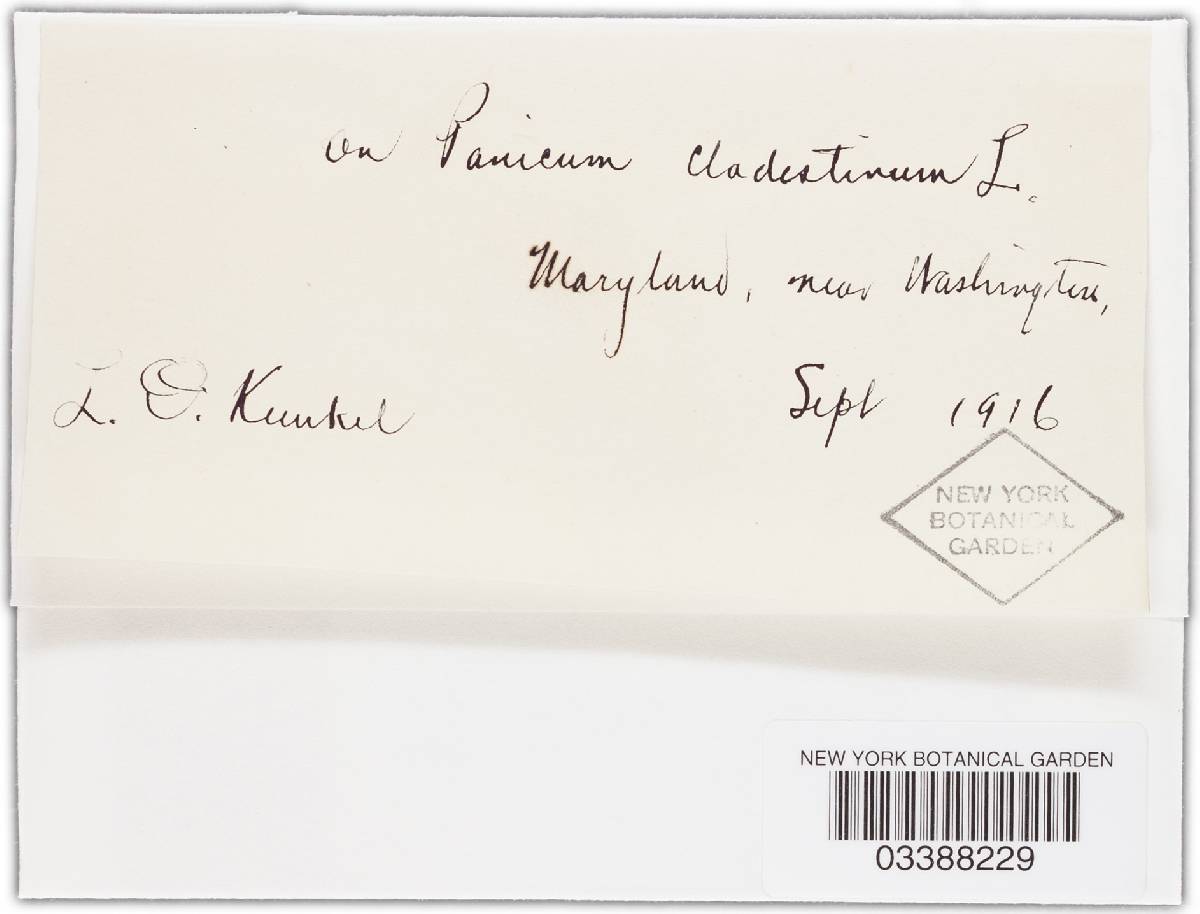 on Panicum cladestinum L.
Maryland, near Washington,
L. O. Kunkel Sept 1916
NEW YORK
BOTANICAL
GARDEN
NEW YORK BOTANICAL GARDEN
03388229